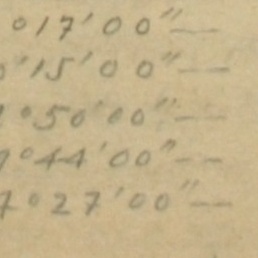 °17'00"—
°15'00"—
°50'00"—
°44'00"--
7°27'00"—